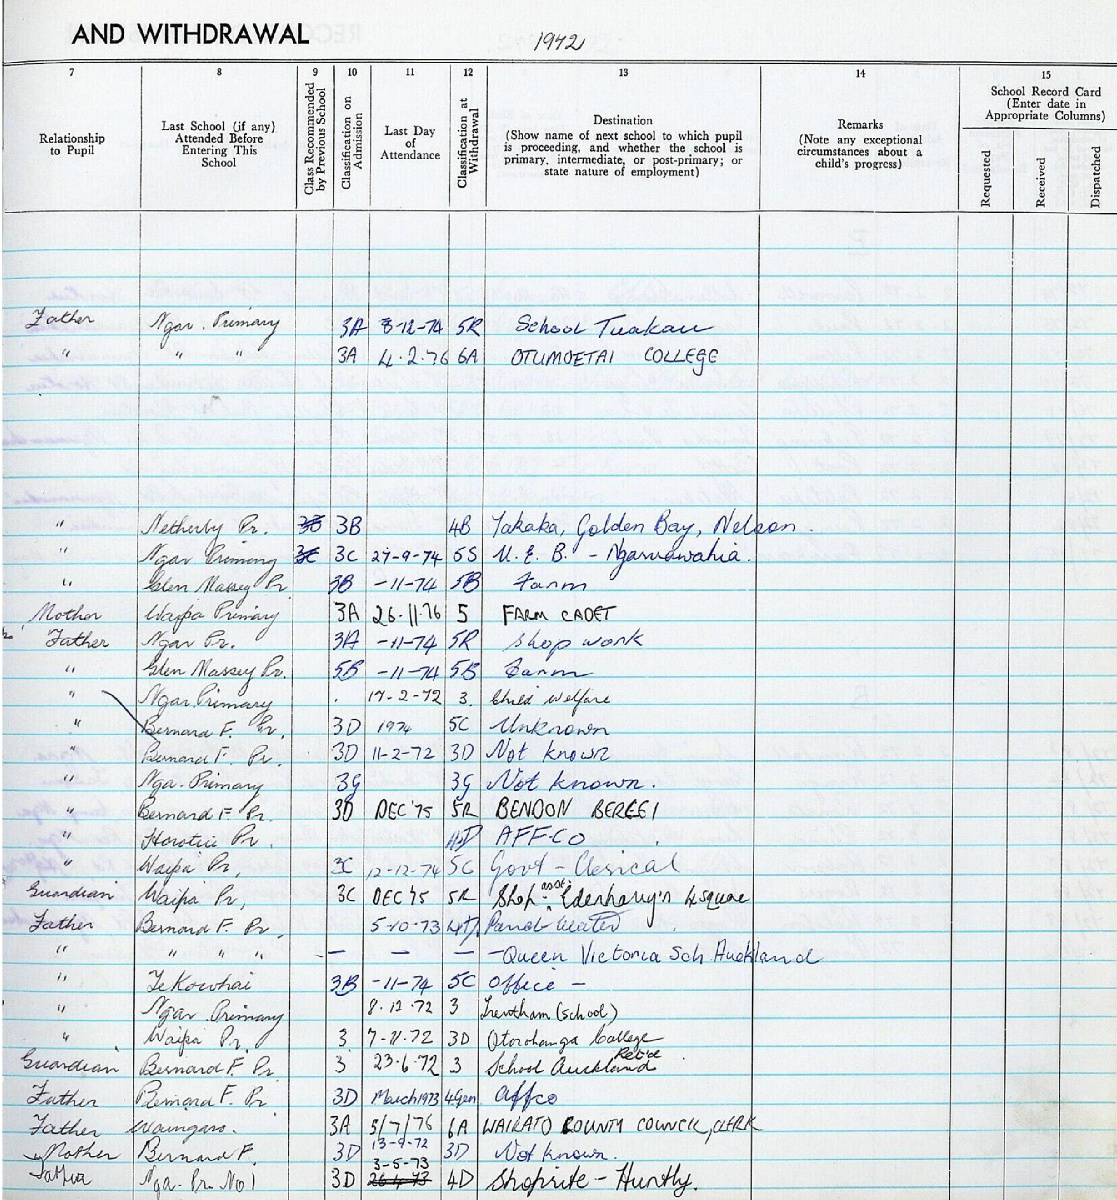 AND WITHDRAWAL 1942
7 8 9 10 11 12 13 14 15
Relationship to Pupil
Last School (if any) Attended Before Entering This School
Class Recommended by Previous School
Classification on Admission
Last Day of Attendance
Classification at Withdrawal
Destination
(Show name of next school to which pupil is proceeding, and whether the school is primary, intermediate, or post-primary; or state nature of employment)
Remarks
(Note any exceptional circumstances about a child's progress)
School Record Card
(Enter date in Appropriate Columns)
Requested
Received
Dispatched
Father Ngar. Primary 3A 8-12-74 5R School Tuakau
" " " 3A 4.2.76 6A OTUMOETAI COLLEGE
" Netherby Pr. 3B 3B 4B Takaka, Golden Bay, Nelson.
" Ngar Primary 3C 3C 27-9-74 5S U.E.B. - Ngaruawahia.
" Glen Massey Pr. 3B -11-74 5B Farm
Mother Waipa Primary 3A 26-11-76 5 FARM CADET
Father Ngar Pr. 3A -11-74 5R Shop work
" Glen Massey Pr. 5B -11-74 5B Farm
" Ngar. Primary . 17-2-72 3. Child welfare
" Bernard F. Pr. 3D 1974 5C Unknown
Bernard F. Pr. 3D 11-2-72 3D Not known
" Nga. Primary 3G 3G Not known.
" Bernard F Pr. 3D DEC '75 5R BENDON
" Horotiu Pr. 4D AFFCO
" Waipa Pr, 3C 12-12-74 5C Govt - Clerical
Guardian Waipa Pr, 3C DEC '75 5R Shop asst. 4 square
Father Bernard F. Pr. 5-10-73
" " " " — — — - Queen Victoria Sch. Auckland
" Te Kowhai 3B -11-74 5C Office -
" Ngar Primary 8.12.72 3 Trentham (school)
" Waipa Pr. 3 7-11-72 3D Otorohanga College
Guardian Bernard F. Pr 3 23-6-72 3 School Auckland
Father Bernard F. Pr 3D March 1973 4Gen Affco
Father Waingaro. 3A 5/7/76 6A WAIKATO COUNTY COUNCIL, CLERK
Mother Bernard F. 3D 13-9-72 3D Not known.
Father Nga. Pr. No 1 3D 3-5-73 4D Shoprite - Huntly.